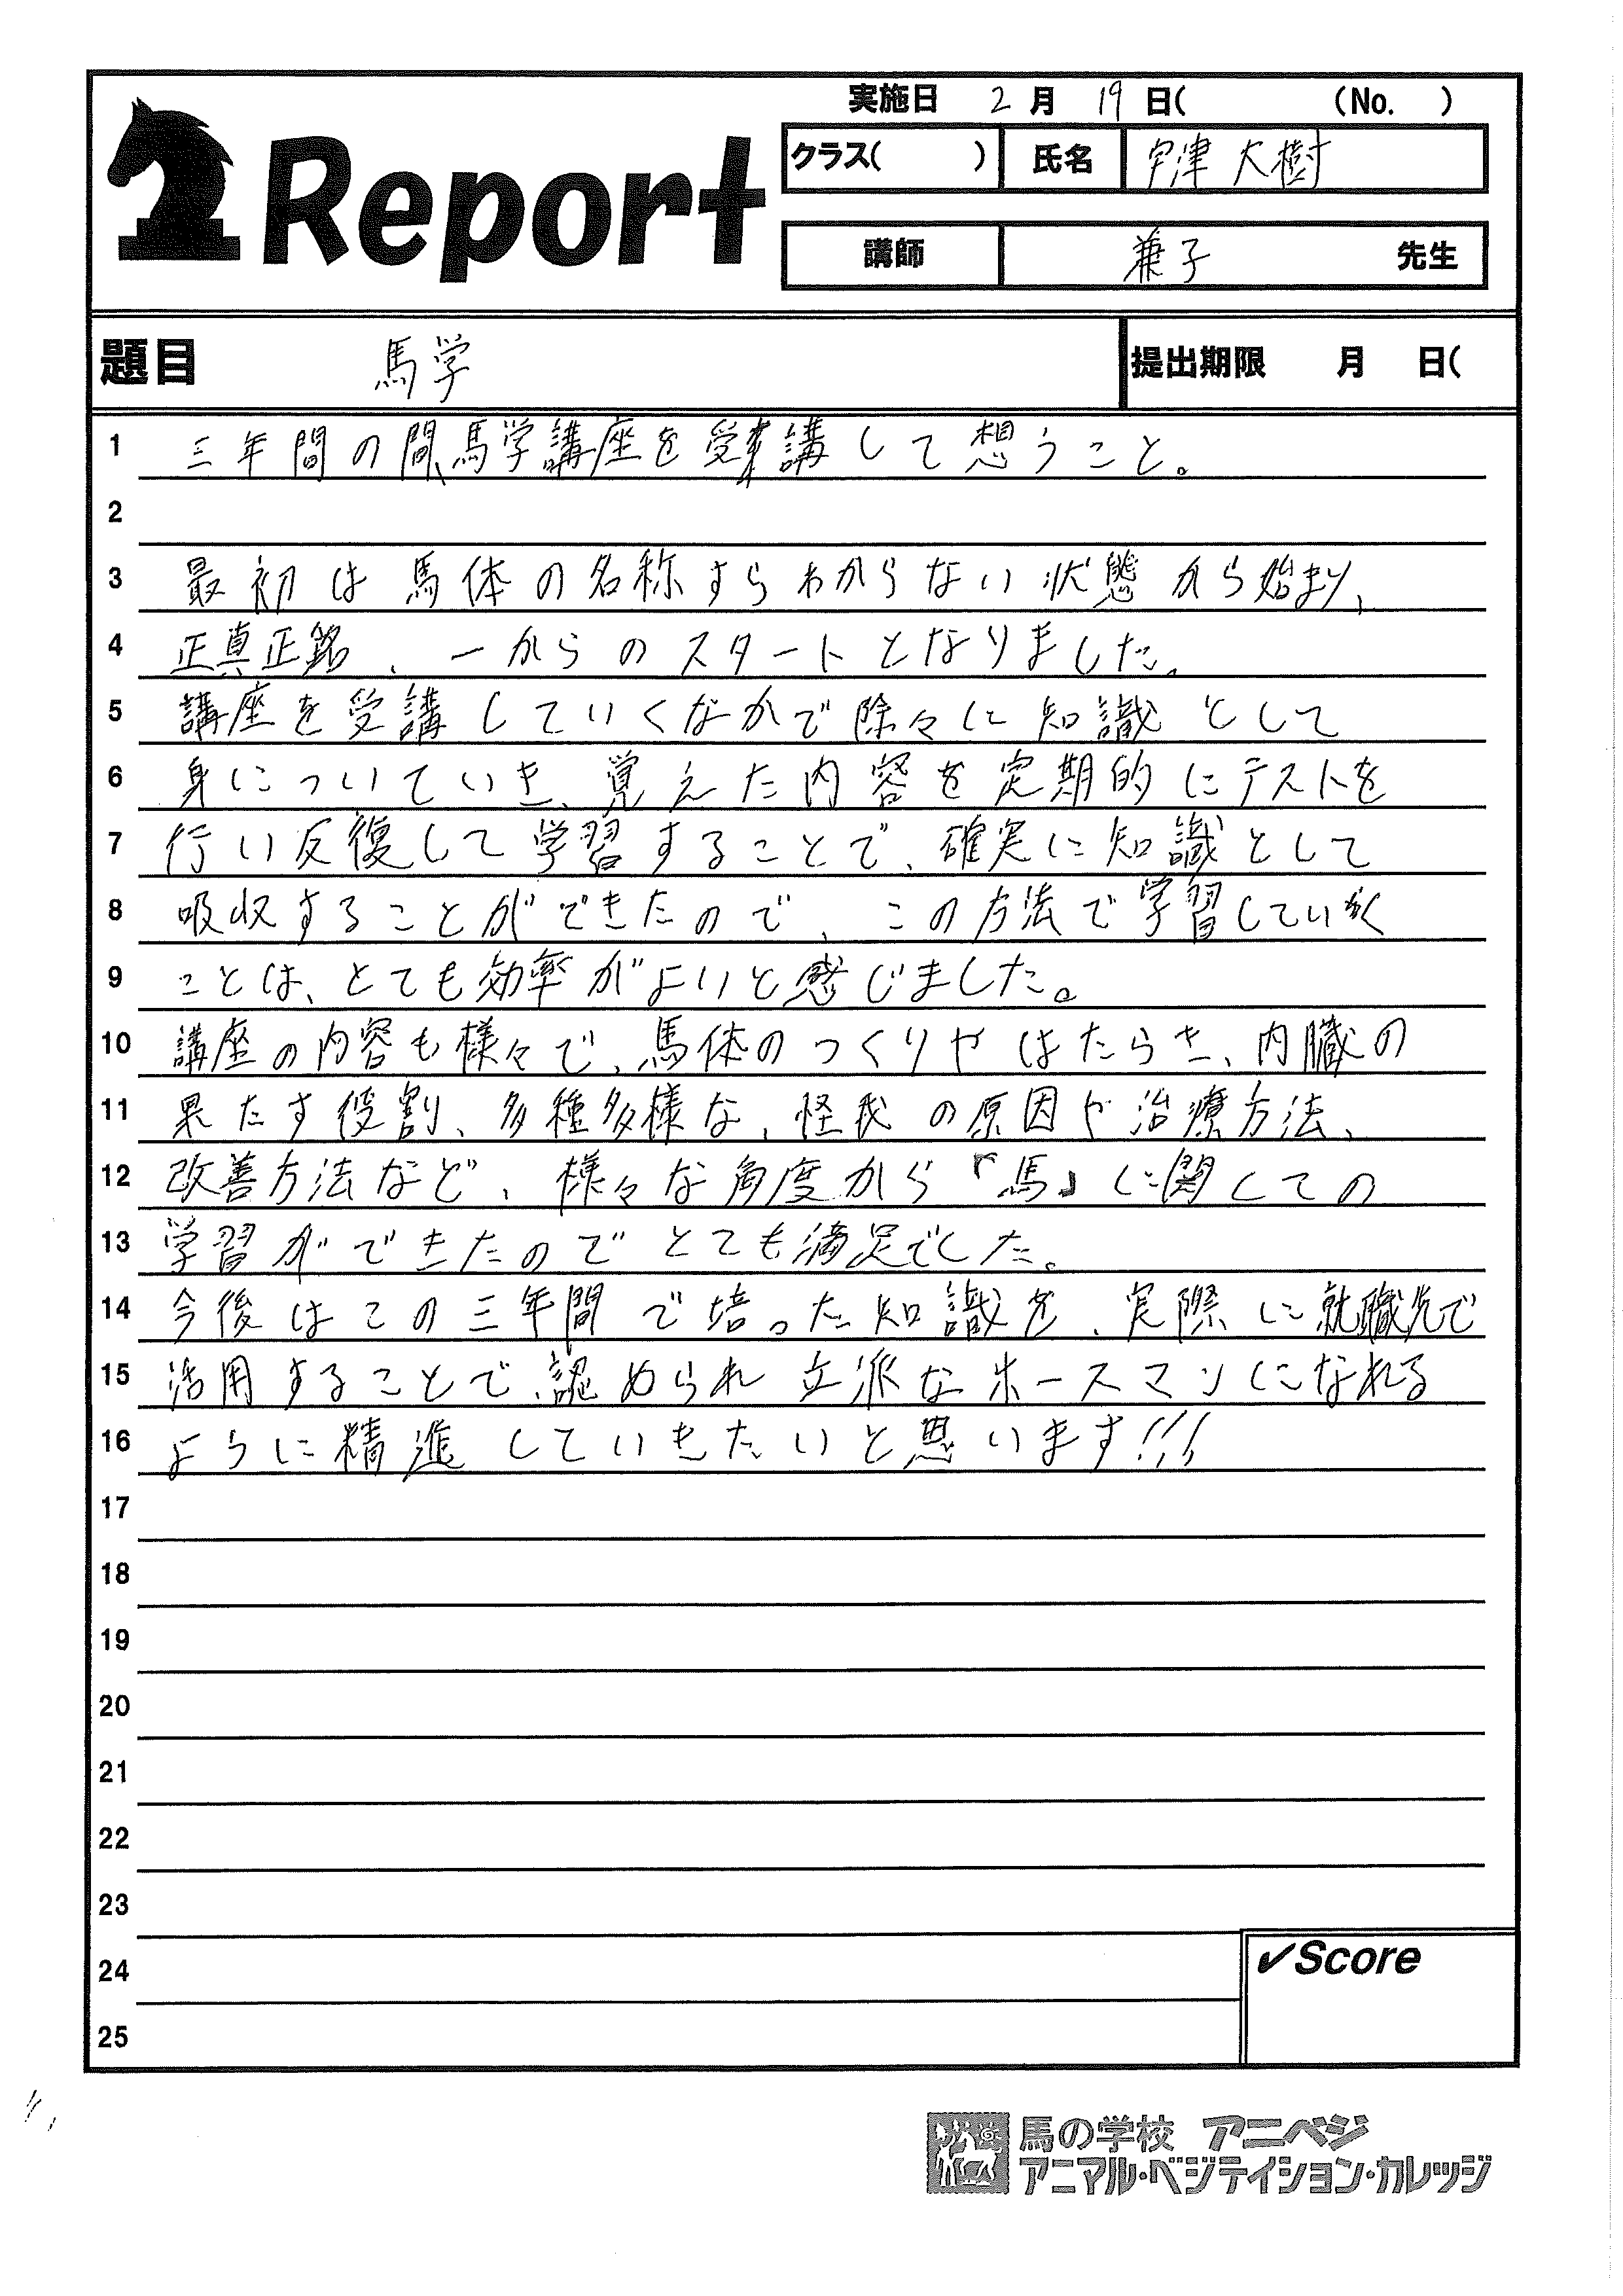 実施日 2月 19日( (No. )
Report
クラス( ) 氏名 宇津 大樹
講師 兼子 先生
題目 馬学 提出期限 月 日(
1 三年間の間、馬学講座を受講して想うこと。
2
3 最初は馬体の名称すらわからない状態から始まり、
4 正真正銘、一からのスタートとなりました。
5 講座を受講していくなかで除々に知識として
6 身についていき、覚えた内容を定期的にテストを
7 行い反復して学習することで、確実に知識として
8 吸収することができたので、この方法で学習していく
9 ことは、とても効率がよいと感じました。
10 講座の内容も様々で、馬体のつくりやはたらき、内臓の
11 果たす役割、多種多様な、怪我の原因や治療方法、
12 改善方法など、様々な角度から『馬』に関しての
13 学習ができたのでとても満足でした。
14 今後はこの三年間で培った知識を、実際に就職先で
15 活用することで、認められ立派なホースマンになれる
16 ように精進していきたいと思います!!!
17
18
19
20
21
22
23
24
✔Score
25
馬の学校 アニベジ
アニマル・ベジテイション・カレッジ